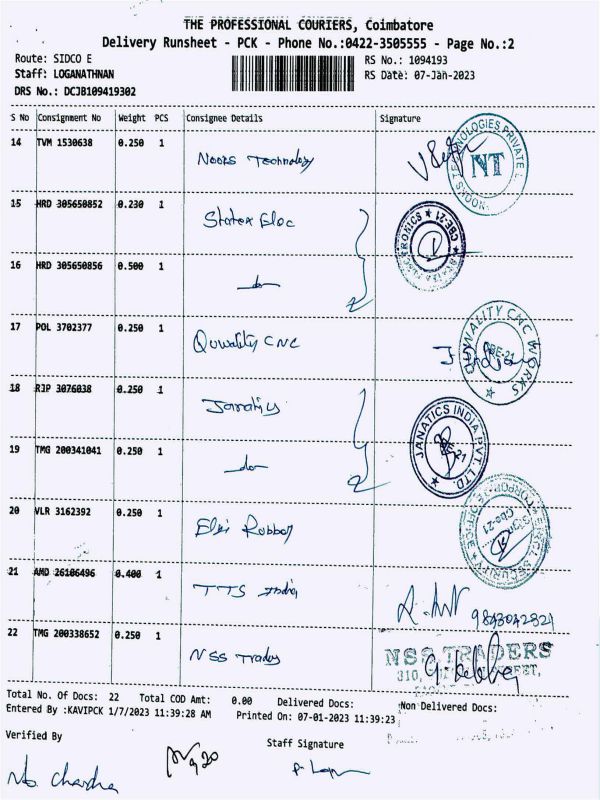 THE PROFESSIONAL COURIERS, Coimbatore
Delivery Runsheet - PCK - Phone No.:0422-3505555 - Page No.:2
Route: SIDCO E
Staff: LOGANATHNAN
DRS No.: DCJB109419302
RS No.: 1094193
RS Date: 07-Jan-2023
S No Consignment No Weight PCS Consignee Details Signature
14 TVM 1530638 0.250 1 Noors Technology
NT
15 HRD 305650852 0.230 1 States Eloc
CBE-21
16 HRD 305650856 0.500 1 do
17 POL 3702377 0.250 1 Quwality CNC
QUWALITY CNC WORKS
18 RJP 3076038 0.250 1 Janatics
JANATICS INDIA PVT. LTD.
19 TMG 200341041 0.250 1 do
20 VLR 3162392 0.250 1 Elgi Rubber
Cbe-21
21 AMD 26106496 0.400 1 TTS India
9843042321
22 TMG 200338652 0.250 1 NSS Traders
NSS TRADERS
310,
Total No. Of Docs: 22 Total COD Amt: 0.00 Delivered Docs: Non Delivered Docs:
Entered By :KAVIPCK 1/7/2023 11:39:28 AM Printed On: 07-01-2023 11:39:23
Verified By
Staff Signature